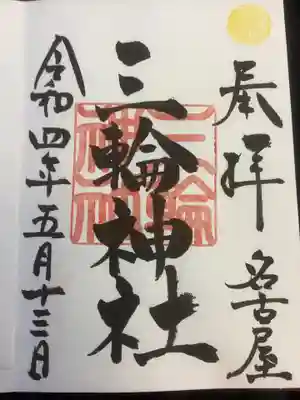 奉拝 名古屋
三輪神社
令和四年五月十三日